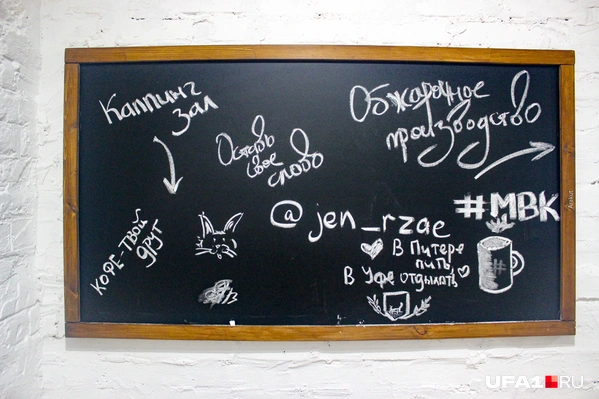 Каппинг
зал
Обжарочное
производство
Оставь
свое
слово
#МВК
@jen_rzae
КОФЕ-ТВОЙ
ДРУГ
В Питере
пить
В Уфе отдыхать
#
UFA1.RU